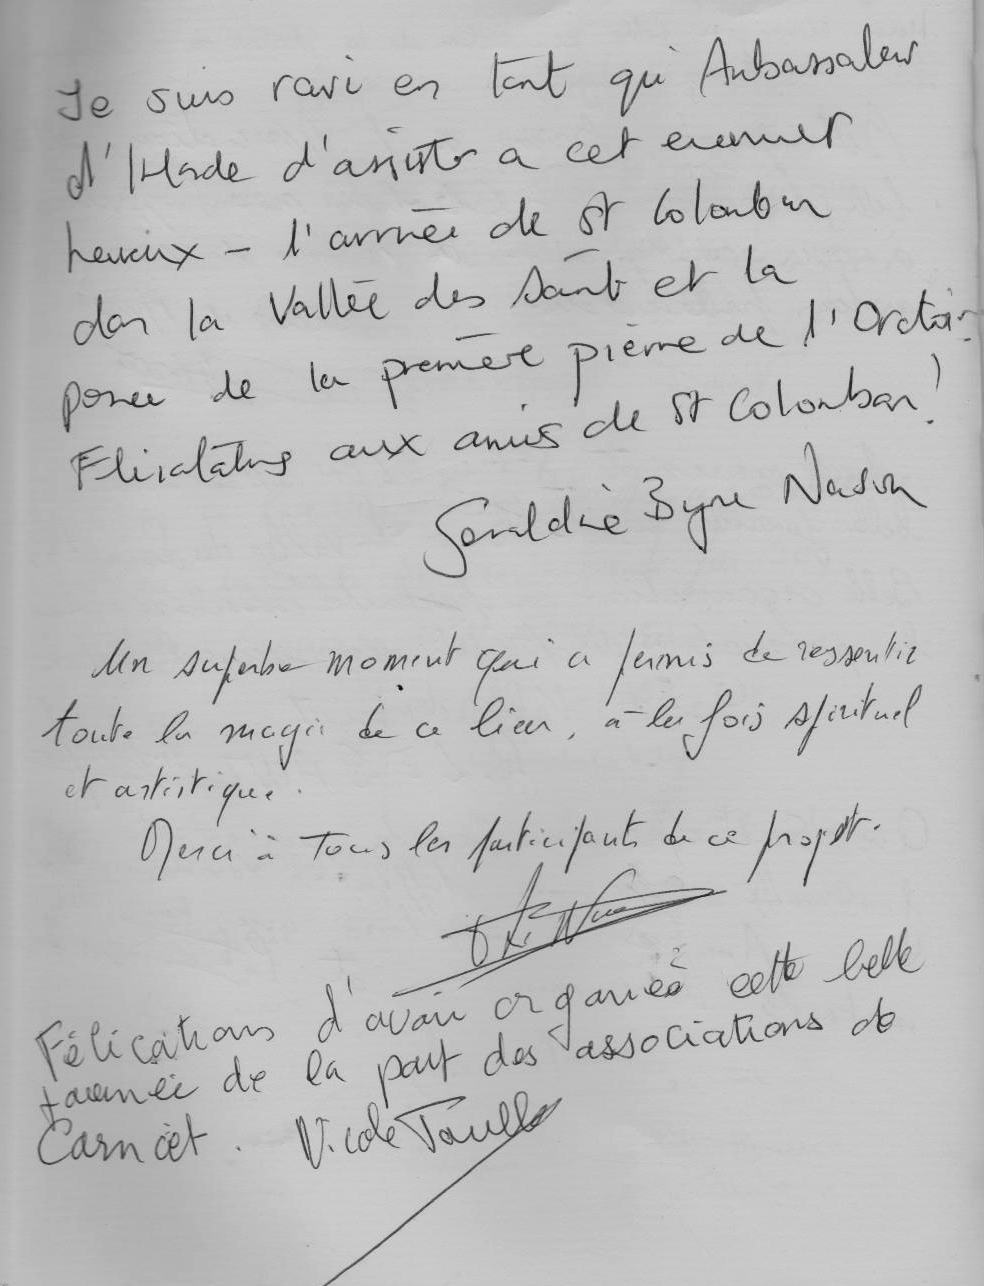 Je suis ravi en tant qu'Ambassadeur
d'Irlande d'assister a cet evenement
heureux – l'arrivée de St Colomban
dans la Vallée des Saints et la
posee de la première pierre de l'Oratoire
Félicitations aux amis de St Colomban!
Geraldine Byrne Nason
Un superbe moment qui a permis de ressentir
toute la magie de ce lieu, à la fois spirituel
et artistique.
Merci à Tous les participants de ce projet.
Félicitations d'avoir organisé cette belle
journée de la part des associations de
Carnoët. Nicole